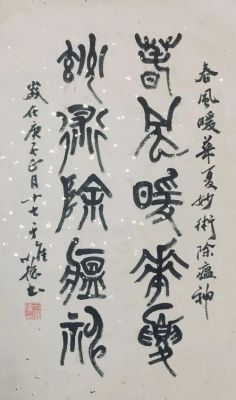 春風暖華夏妙術除瘟神
春風暖華夏
妙術除瘟神
歲在庚子正月十七
书